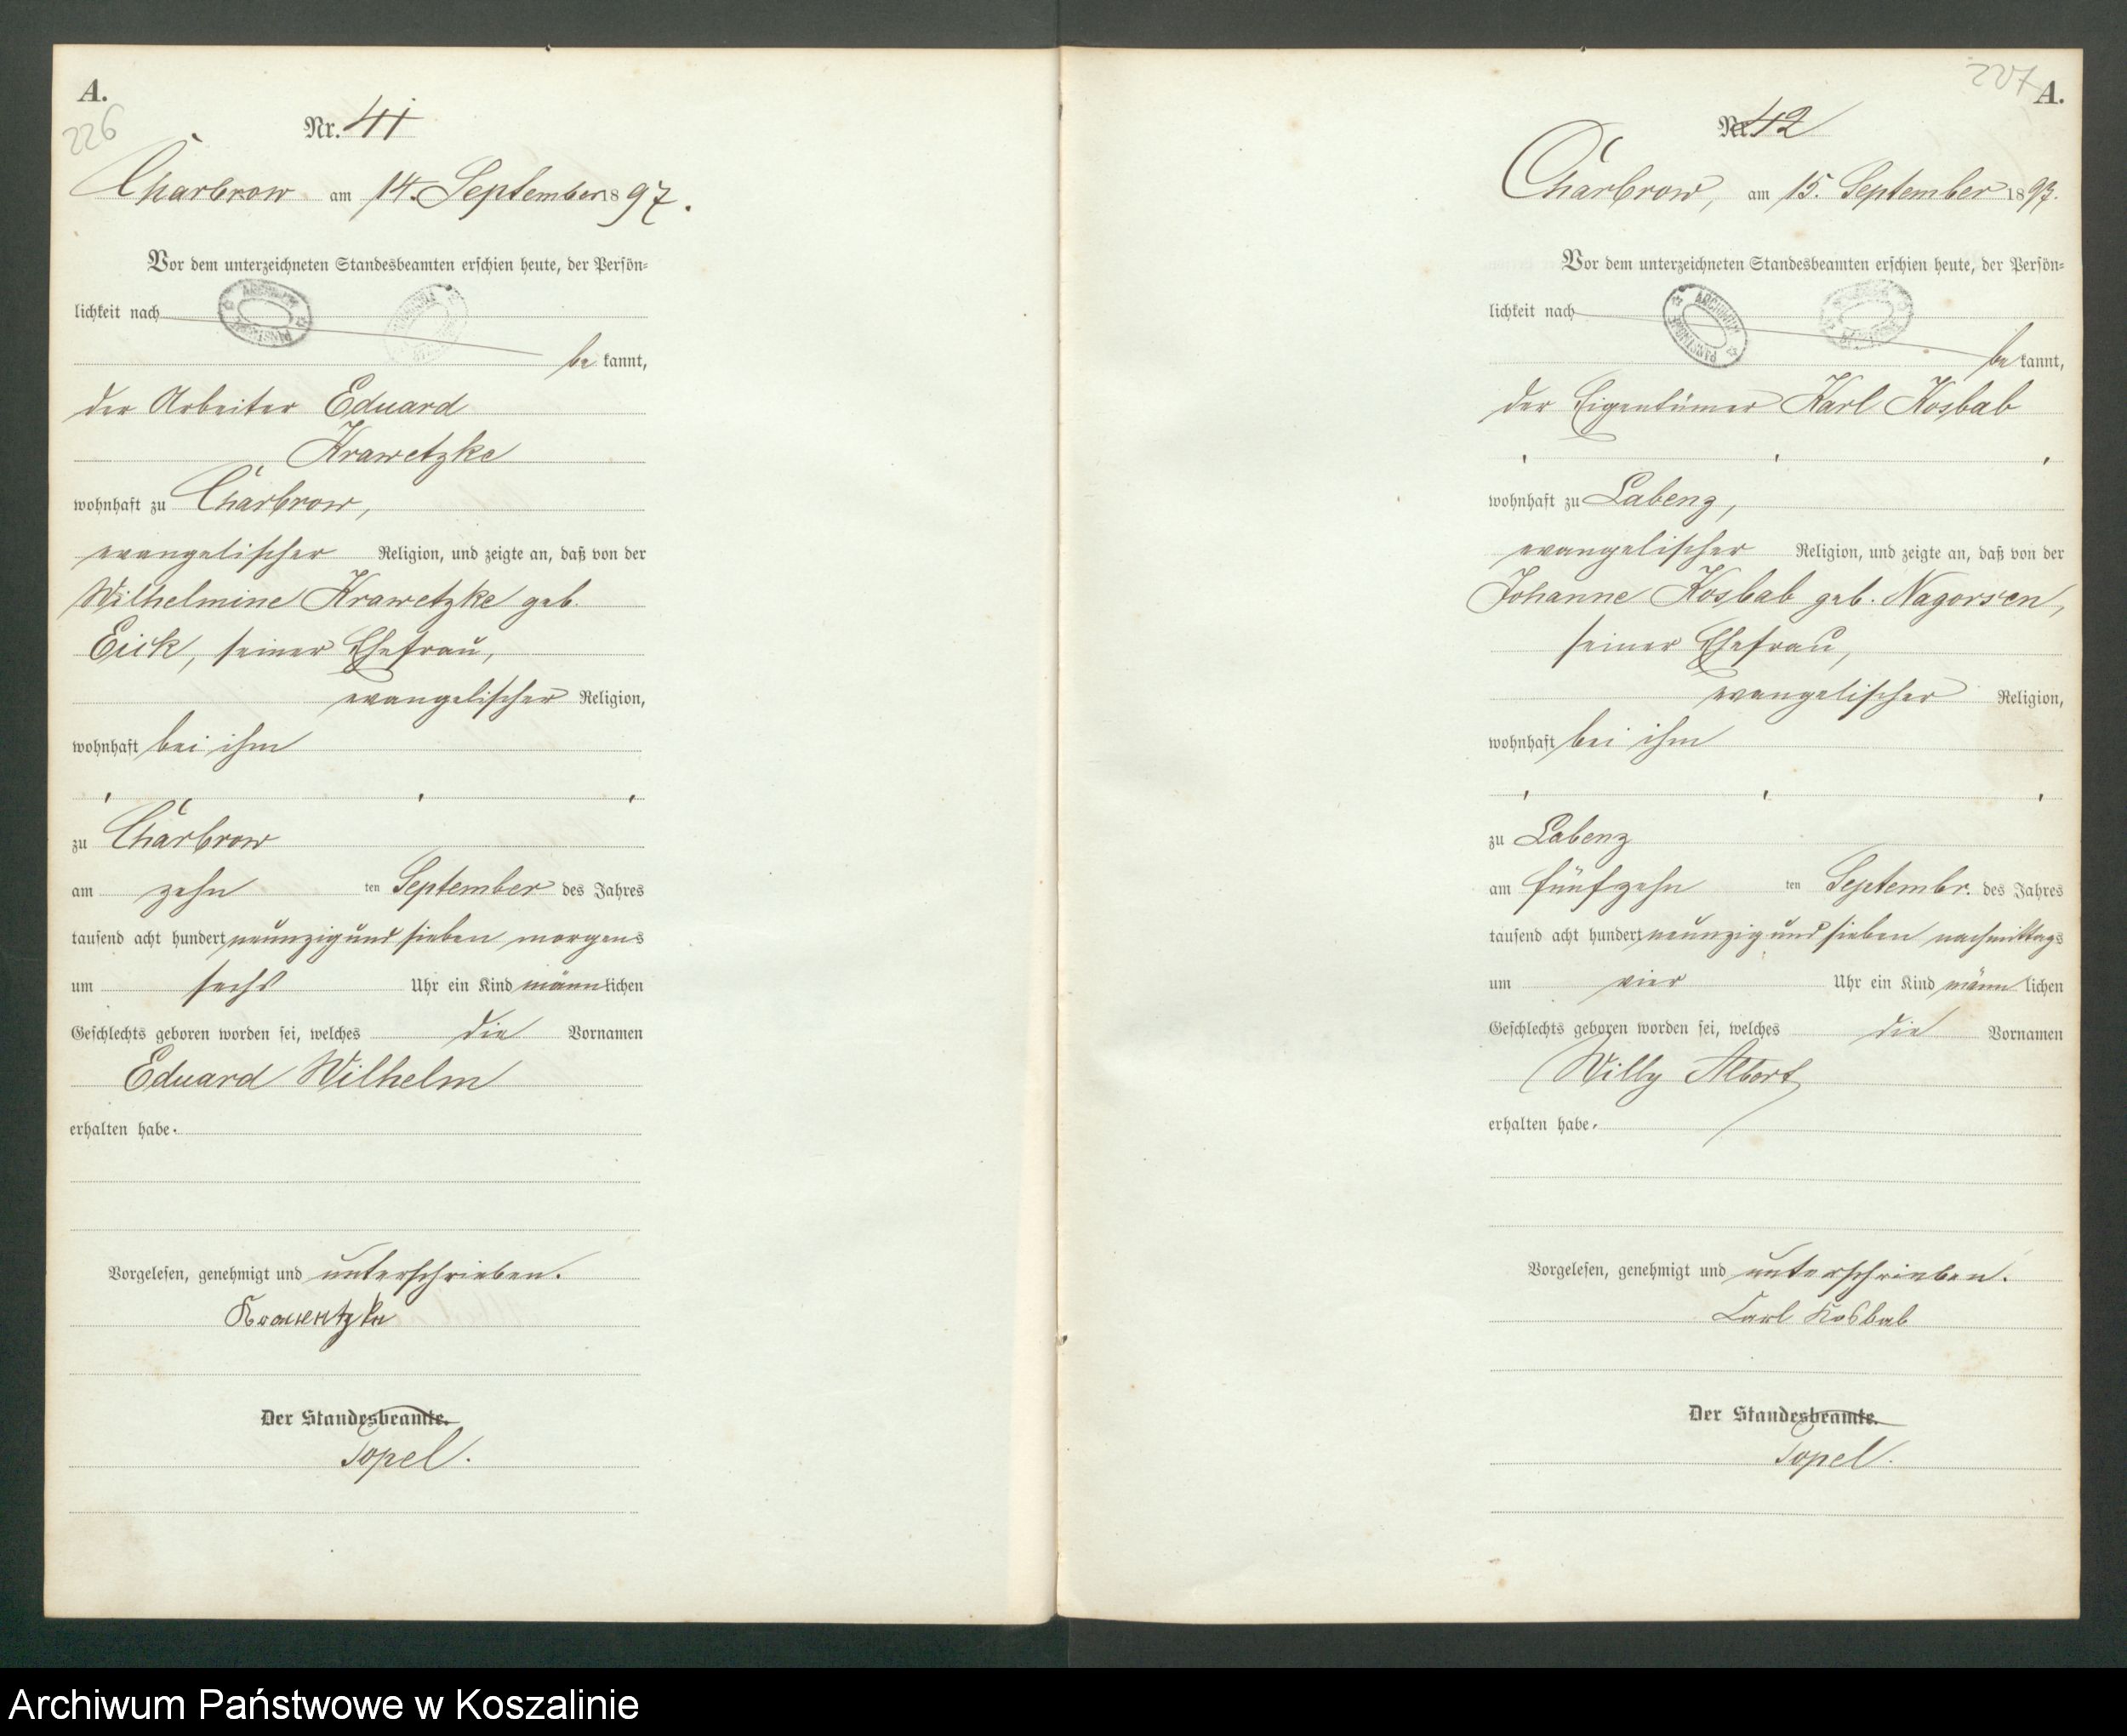 A.
226
Nr. 41
Charbrow am 14. September 1897.
Vor dem unterzeichneten Standesbeamten erschien heute, der Persön-
lichkeit nach
be kannt,
der Arbeiter Eduard
Krawetzke
wohnhaft zu Charbrow,
evangelischer Religion, und zeigte an, daß von der
Wilhelmine Krawetzke geb.
Eick, seiner Ehefrau,
evangelischer Religion,
wohnhaft bei ihm
zu Charbrow
am zehn ten September des Jahres
tausend acht hundert neunzig und sieben morgens
um sechs Uhr ein Kind männlichen
Geschlechts geboren worden sei, welches die Vornamen
Eduard Wilhelm
erhalten habe.
Vorgelesen, genehmigt und unterschrieben.
Der Standesbeamte.
Topel.
207
A.
Nr. 42
Charbrow, am 15. September 1897.
Vor dem unterzeichneten Standesbeamten erschien heute, der Persön-
lichkeit nach
be kannt,
der Eigentümer Karl Kosbab
wohnhaft zu Labenz,
evangelischer Religion, und zeigte an, daß von der
Johanne Kosbab geb. Nagorsen,
seiner Ehefrau,
evangelischer Religion,
wohnhaft bei ihm
zu Labenz
am fünfzehn ten Septembr. des Jahres
tausend acht hundert neunzig und sieben nachmittags
um vier Uhr ein Kind männ lichen
Geschlechts geboren worden sei, welches die Vornamen
Willy Albert
erhalten habe.
Vorgelesen, genehmigt und unterschrieben.
Carl Kosbab
Der Standesbeamte.
Topel.
Archiwum Państwowe w Koszalinie